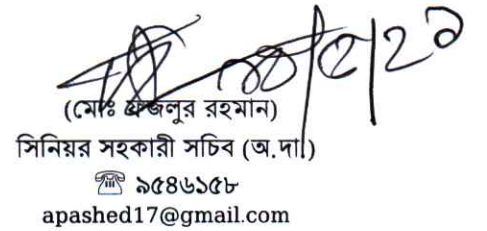 (মোঃ ফজলুর রহমান)
সিনিয়র সহকারী সচিব (অ.দা.)
☎ ৯৫৪৬১৫৮
apashed17@gmail.com